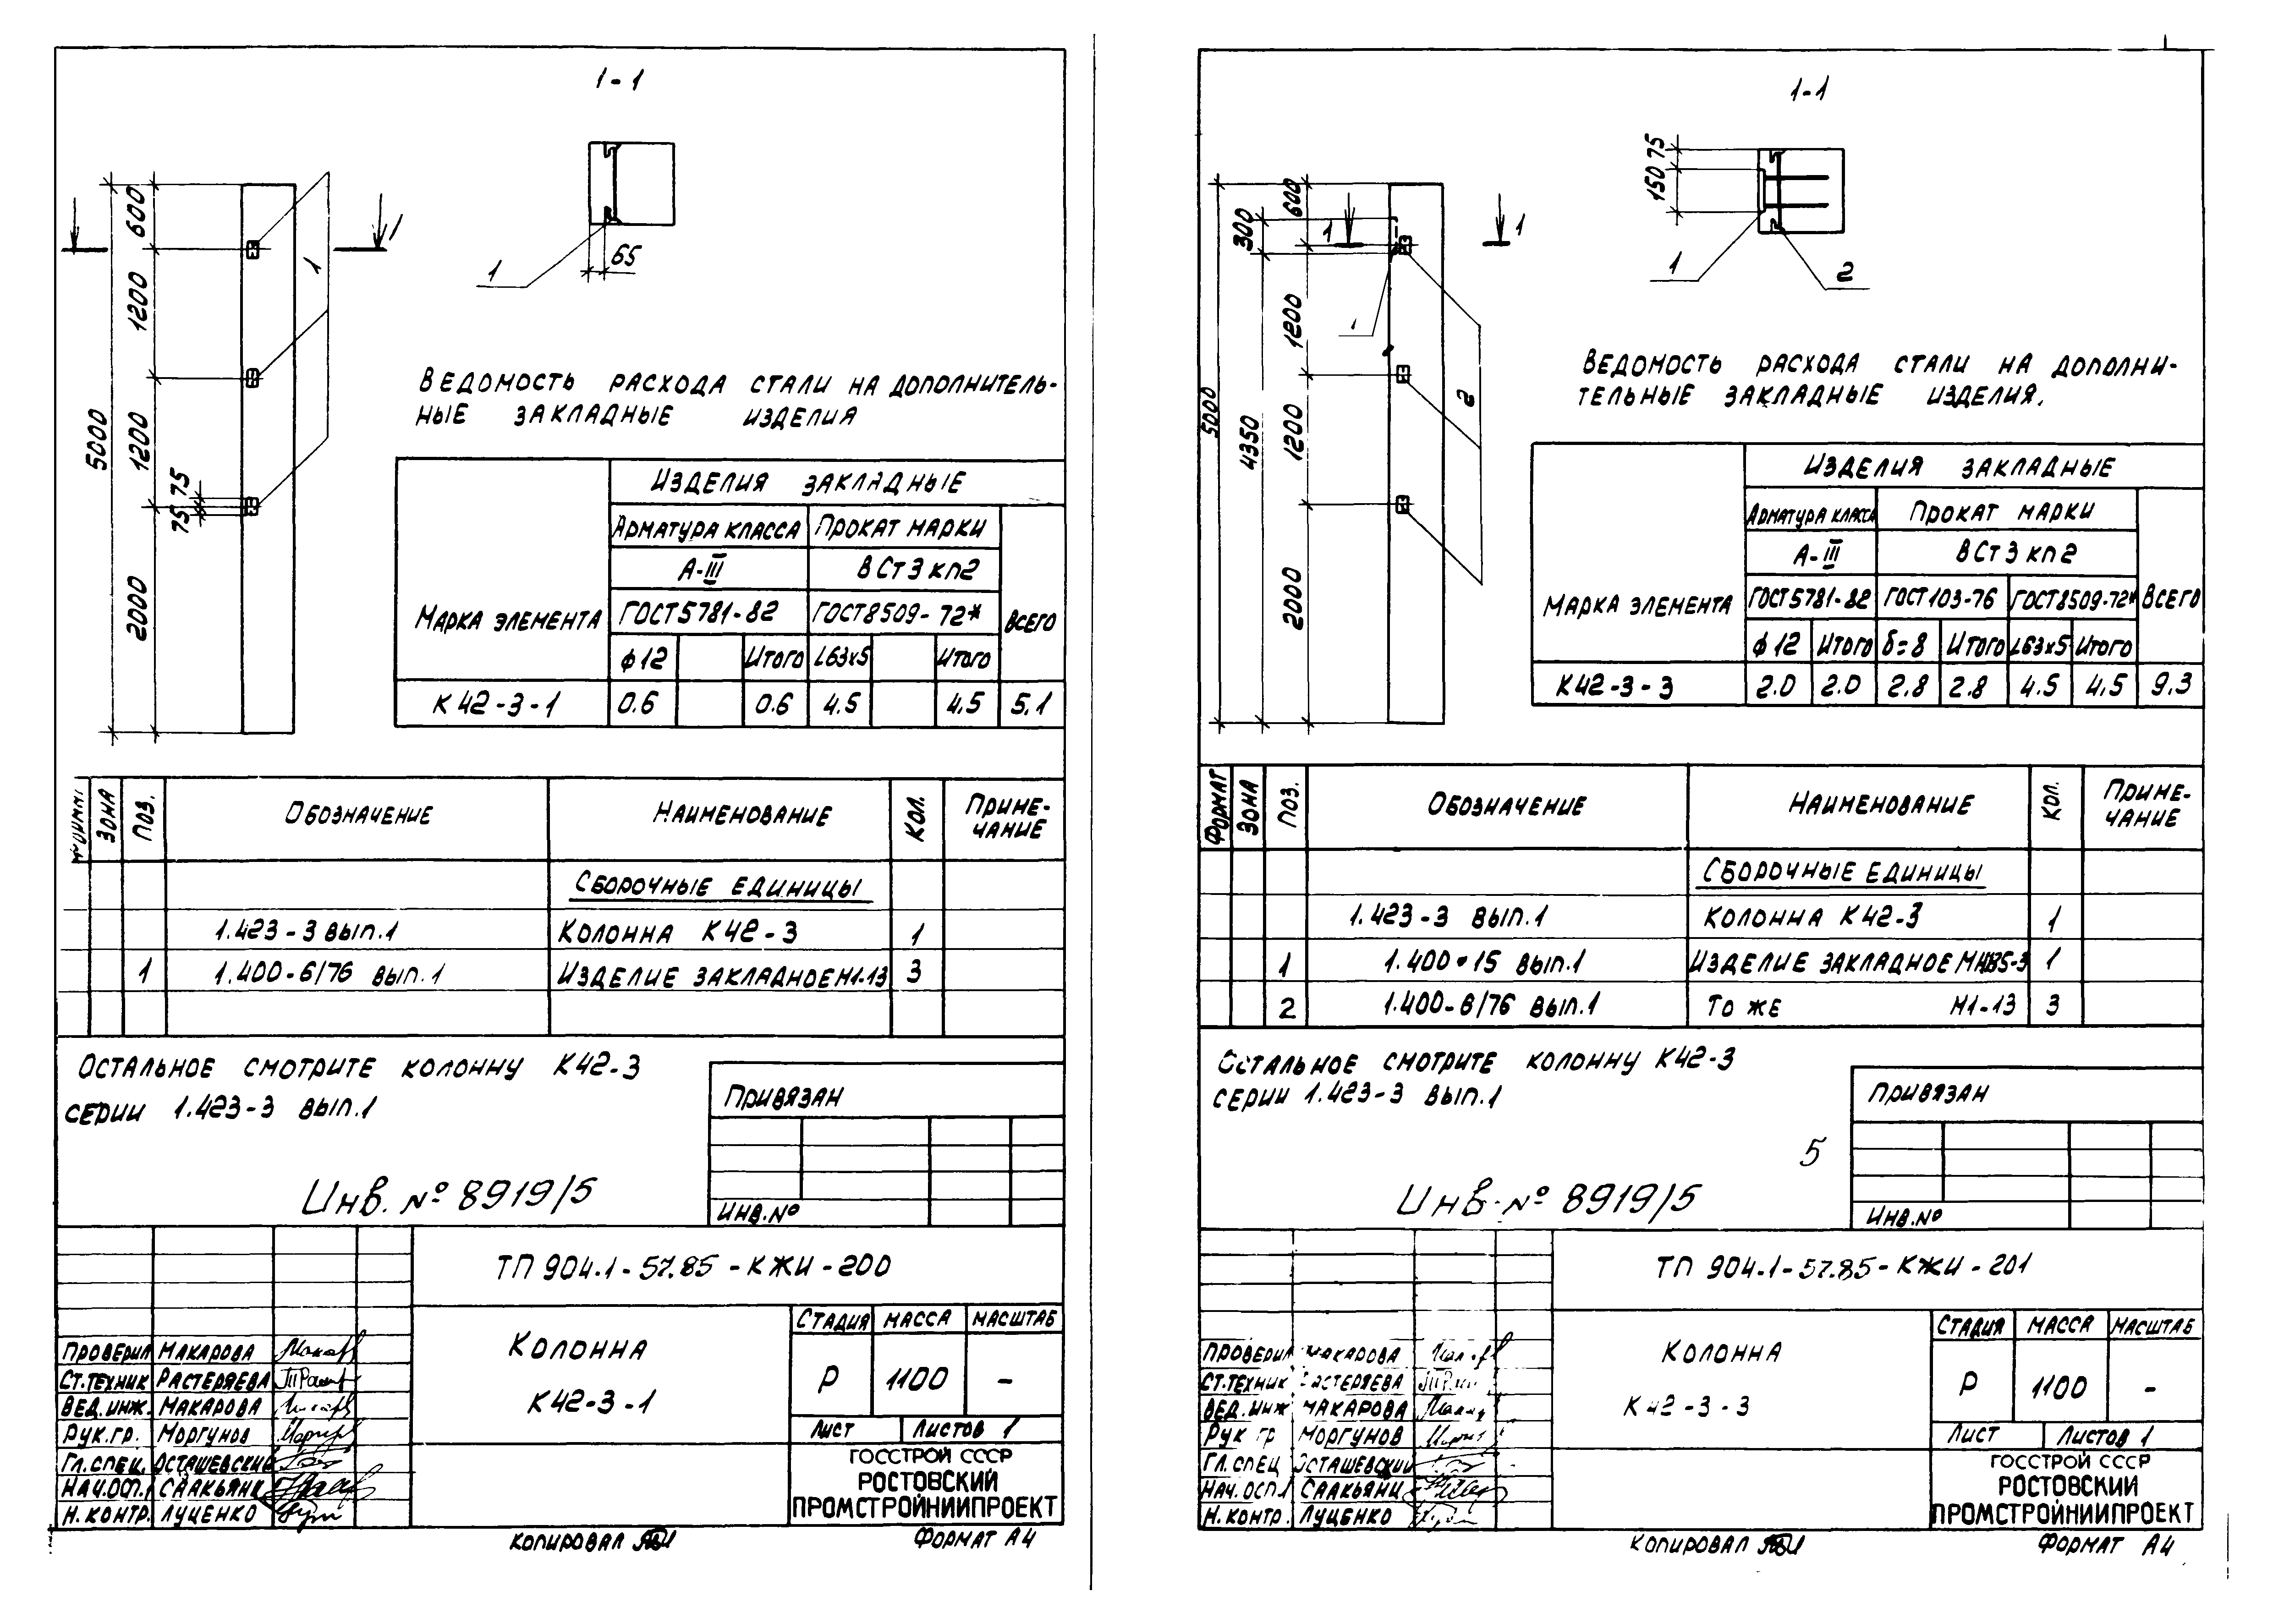 1-1
600
1200
1200
75
75
2000
5000
1
1
65
1
Ведомость расхода стали на дополнитель-
ные закладные изделия
Марка элемента
Изделия закладные
Арматура класса
Прокат марки
А-III
ВСт3кп2
ГОСТ5781-82
ГОСТ8509-72*
Всего
ф12
Итого
L63х5
Итого
К42-3-1
0.6
0.6
4.5
4.5
5.1
Зона
Поз.
Обозначение
Наименование
Кол.
Приме-
чание
Сборочные единицы
1.423-3 вып.1
Колонна К42-3
1
1
1.400-6/76 вып.1
Изделие закладное Н1-13
3
Остальное смотрите колонну К42-3
серии 1.423-3 вып.1
Привязан
Инв.№
Инв. № 8919/5
ТП 904.1-57.85-КЖИ-200
Колонна
К42-3-1
Стадия
Масса
Масштаб
Р
1100
-
Лист
Листов 1
Проверил Макарова
Ст.техник Растеряева
Вед.инж. Макарова
Рук.гр. Моргунов
Гл.спец. Осташевский
Нач.отд. Саакьянц
Н.контр. Луценко
ГОССТРОЙ СССР
РОСТОВСКИЙ
ПРОМСТРОЙНИИПРОЕКТ
Копировал
Формат А4
1-1
75
150
1
2
600
300
1200
1200
2000
4350
5000
1
1
1
2
Ведомость расхода стали на дополни-
тельные закладные изделия.
Марка элемента
Изделия закладные
Арматура класса
Прокат марки
А-III
ВСт3кп2
ГОСТ5781-82
ГОСТ103-76
ГОСТ8509-72*
Всего
ф12
Итого
δ=8
Итого
L63х5
Итого
К42-3-3
2.0
2.0
2.8
2.8
4.5
4.5
9.3
Формат
Зона
Поз.
Обозначение
Наименование
Кол.
Приме-
чание
Сборочные единицы
1.423-3 вып.1
Колонна К42-3
1
1
1.400-15 вып.1
Изделие закладное
1
2
1.400-6/76 вып.1
То же Н1-13
3
Остальное смотрите колонну К42-3
серии 1.423-3 вып.1
5
Привязан
Инв.№
Инв. № 8919/5
ТП 904.1-57.85-КЖИ-201
Колонна
К42-3-3
Стадия
Масса
Масштаб
Р
1100
-
Лист
Листов 1
Проверил Макарова
Ст.техник Растеряева
Вед.инж Макарова
Рук гр Моргунов
Гл.спец Осташевский
Нач. Саакьянц
Н.контр. Луценко
ГОССТРОЙ СССР
РОСТОВСКИЙ
ПРОМСТРОЙНИИПРОЕКТ
Копировал
Формат А4